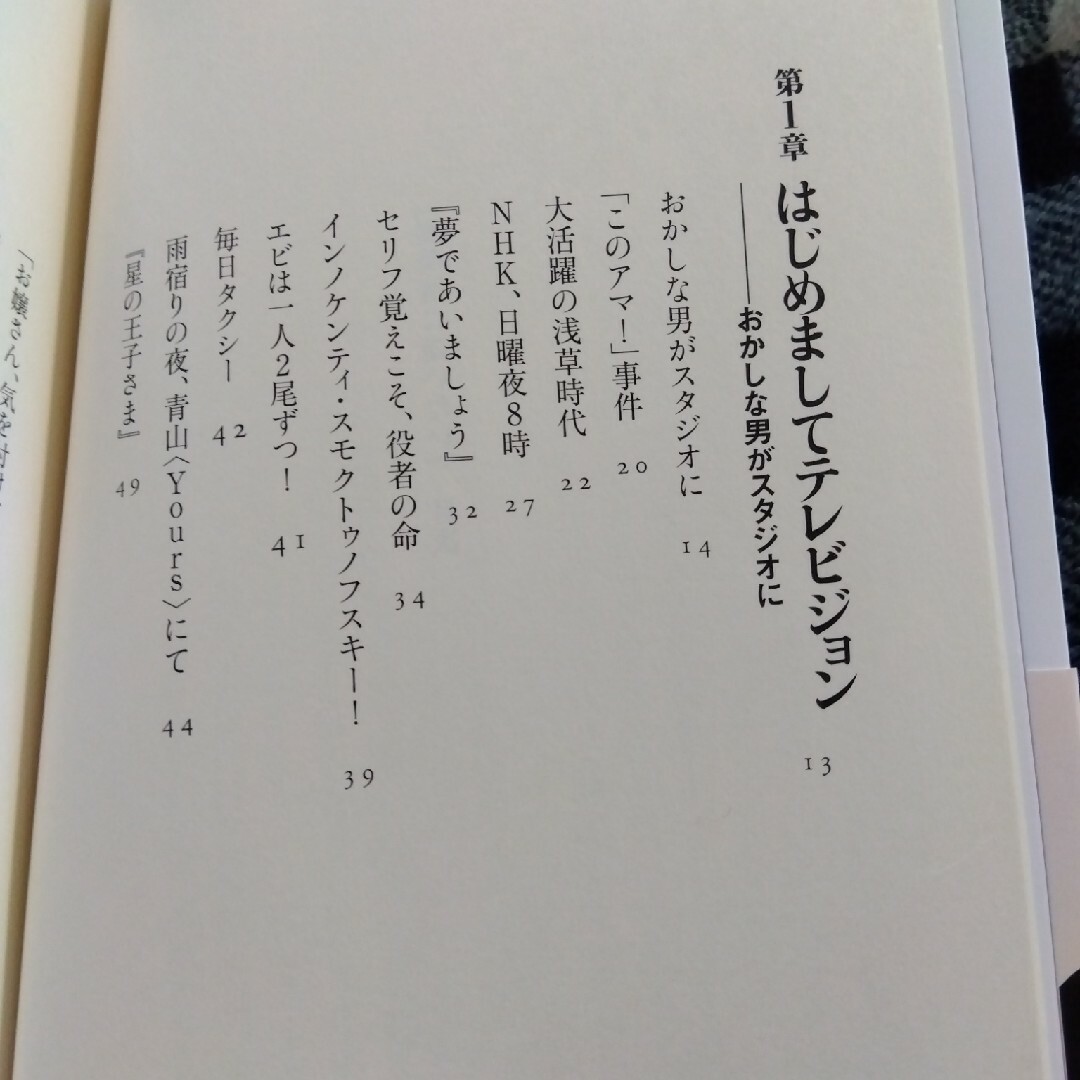 第1章 はじめましてテレビジョン 13
――おかしな男がスタジオに
おかしな男がスタジオに 14
「このアマ!」事件 20
大活躍の浅草時代 22
NHK、日曜夜8時 27
『夢であいましょう』 32
セリフ覚えこそ、役者の命 34
インノケンティ・スモクトゥノフスキー! 39
エビは一人2尾ずつ! 41
毎日タクシー 42
雨宿りの夜、青山〈Yours〉にて 44
『星の王子さま』 49
「お嬢さん、気を付け